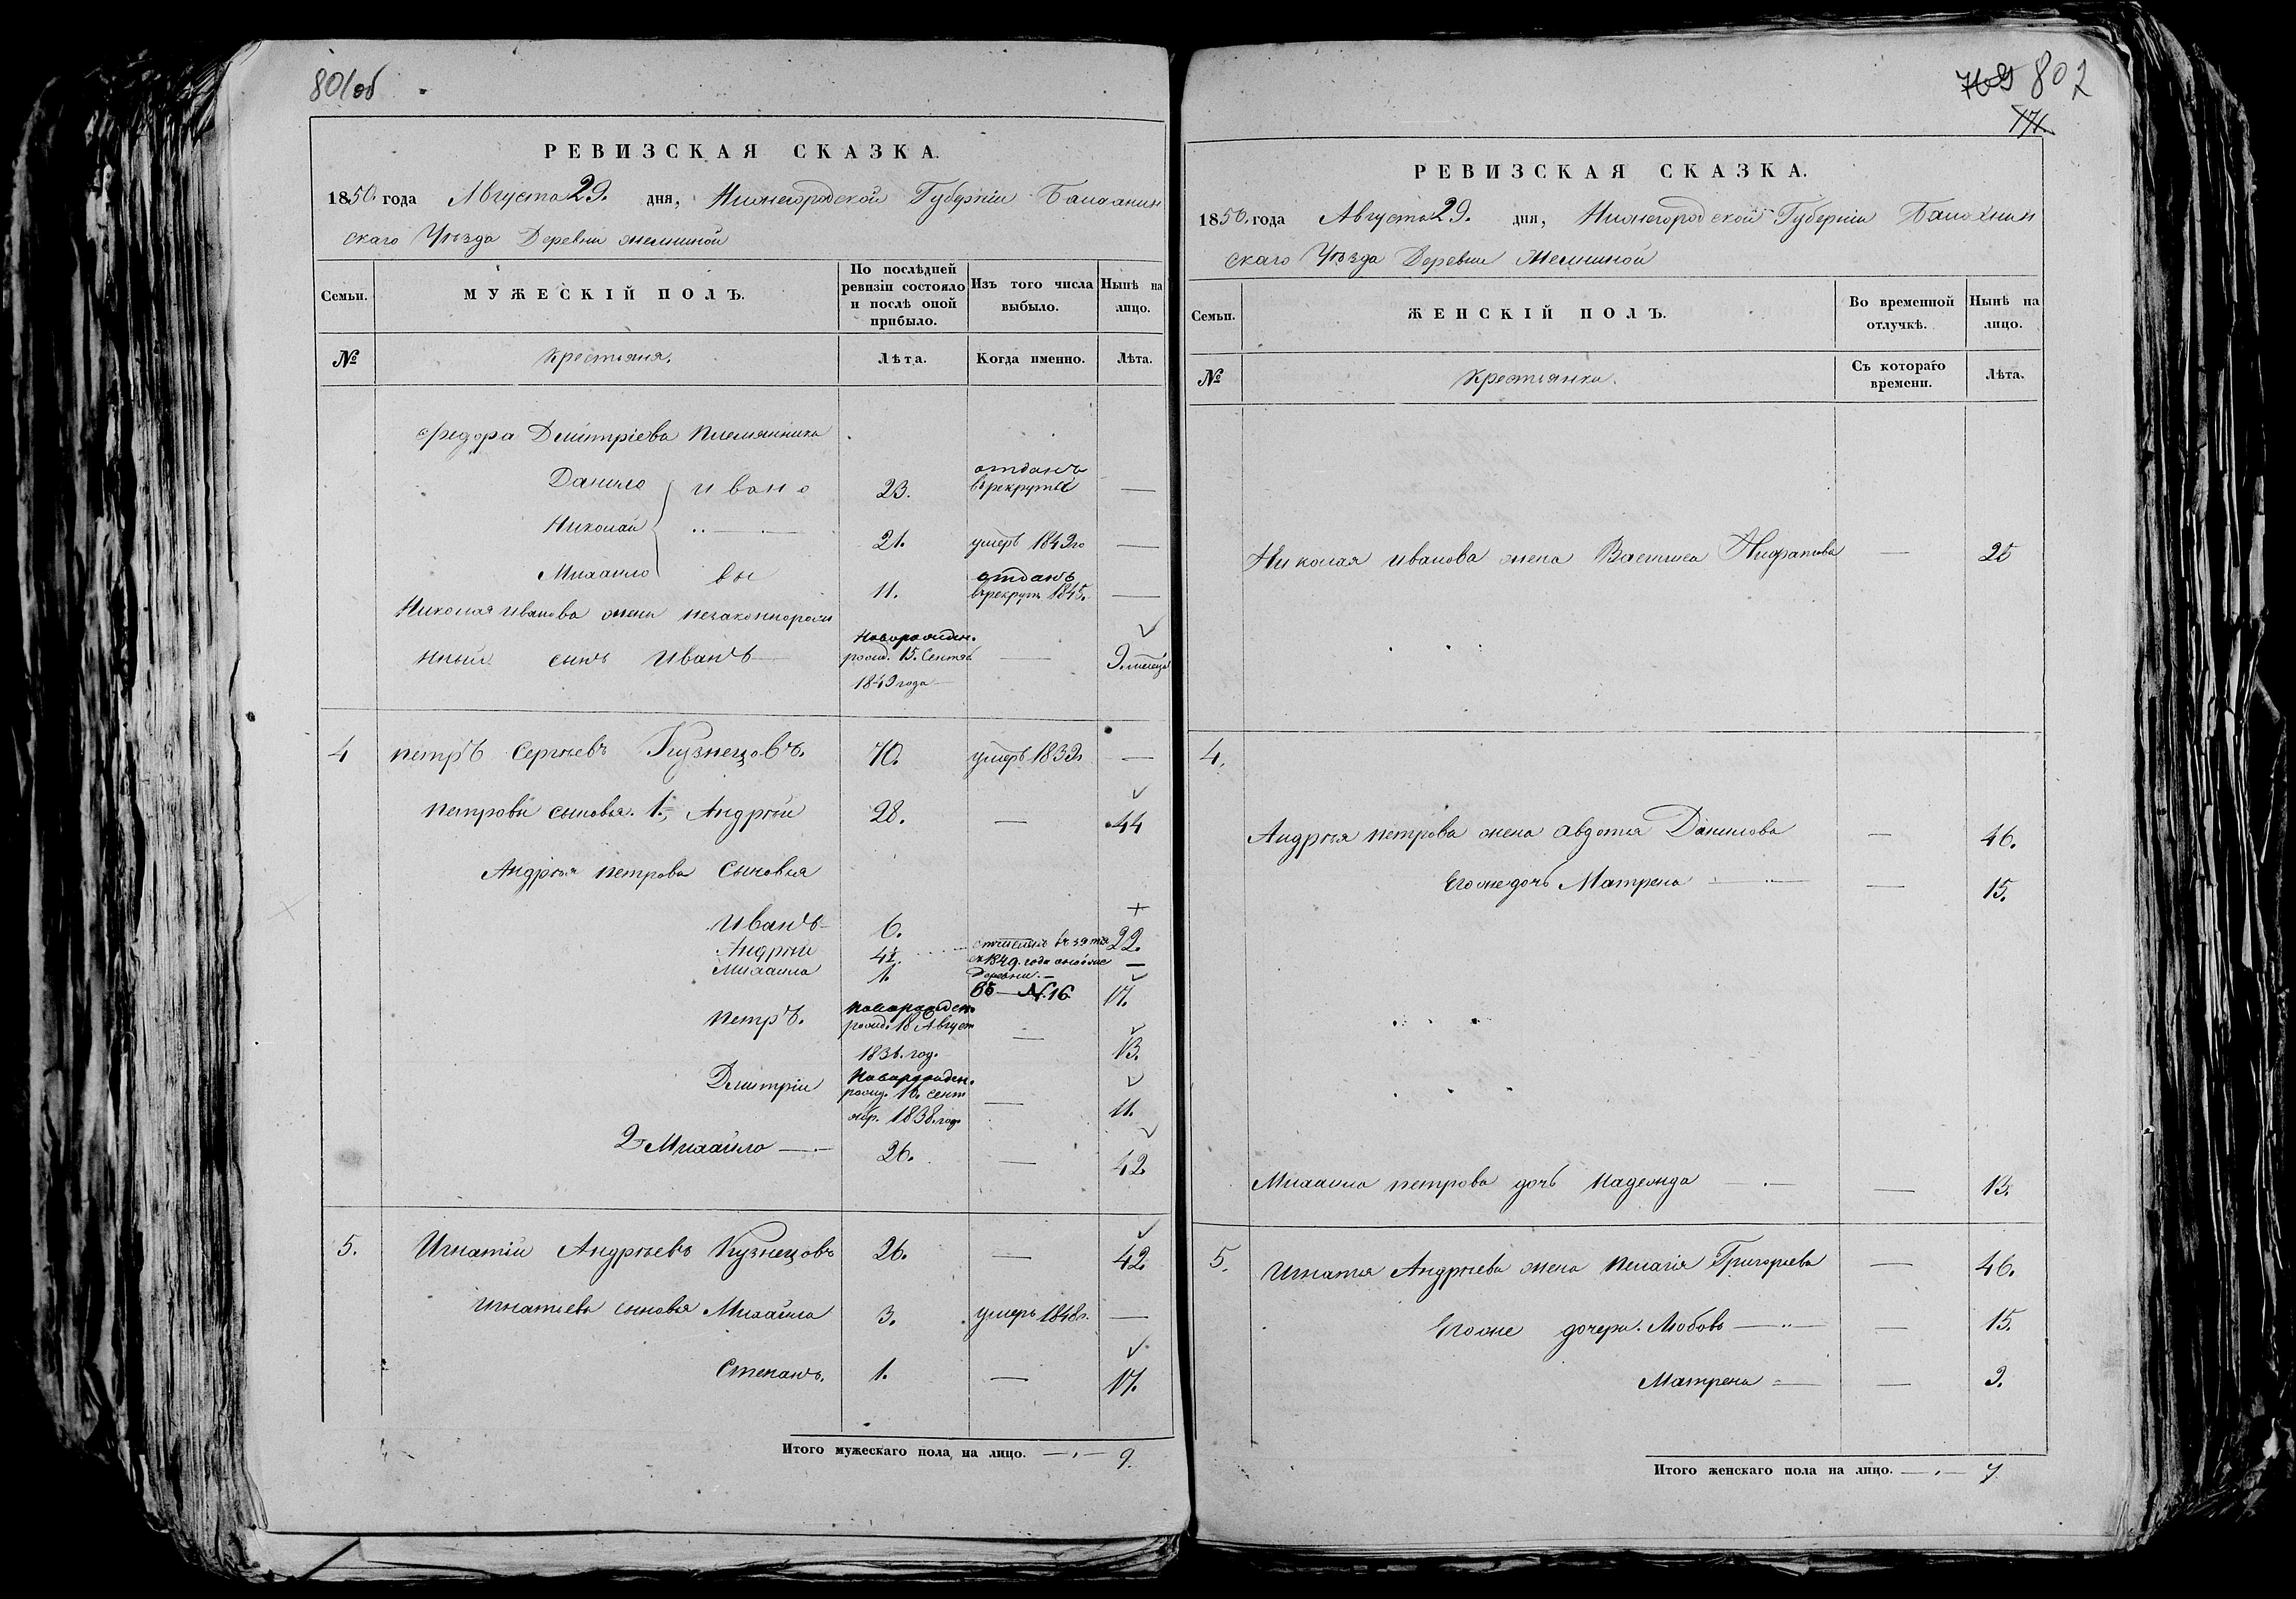 801об
РЕВИЗСКАЯ СКАЗКА.
1850. года Августа 29. дня, Нижегородской Губерніи Балахнин
скаго Уѣзда Деревни
Семьи.
МУЖЕСКІЙ ПОЛЪ.
По послѣдней ревизіи состояло и послѣ оной прибыло.
Изъ того числа выбыло.
Нынѣ на лицо.
№
Крестьяня.
Лѣта.
Когда именно.
Лѣта.
Федора Дмитріева племянники
Данило Ивано 23. отданъ в рекруты —
Николай 21. умеръ 1849го —
Михайло вы 11. отданъ в рекруты 1845. —
Николая Иванова жены незаконнорож
нный сынъ Иванъ Новорожден. рожд. 15. Сентяб 1849 года — 9. месяц
4 Петръ Сергѣевъ Кузнецовъ. 70. умеръ 1839 —
Петровы сыновья. 1., Андрѣй 28. — 44
Андрѣя Петрова Сыновья
Иванъ 6. 22.
Андрѣй 4½. —
деревни. —
Михайла 1. 65 — №16 17.
Петръ. Новорожден. рожд. 18 Август 1836. год. — 13.
Дмитрій Новорожден. рожд. 10. сент ябр. 1838. год — 11.
2 Михайло — 26. — 42
5. Игнатій Андрѣевъ Кузнецовъ 26. — 42.
Игнатьевы сыновья Михайла 3. умеръ 1848г. —
Степанъ. 1. — 17.
Итого мужескаго пола на лицо. — 9.
709 802
171.
РЕВИЗСКАЯ СКАЗКА.
1850. года Августа 29. дня, Нижегородской Губерніи Балахнин
скаго Уѣзда Деревни
Семьи.
ЖЕНСКІЙ ПОЛЪ.
Во временной отлучкѣ.
Нынѣ на лицо.
№
Крестьянки.
Съ котораго времени.
Лѣта.
Николая Иванова жена — 25
4.
Андрѣя Петрова жена Авдотья Данилова — 46.
Его же дочь Матрена — 15.
Михайла Петрова дочь Надежда — 13.
5. Игнатья Андрѣева жена Пелагія Григорьева — 46.
Его же дочери. Любовь — 15.
Матрена — 9.
Итого женскаго пола на лицо. — 7